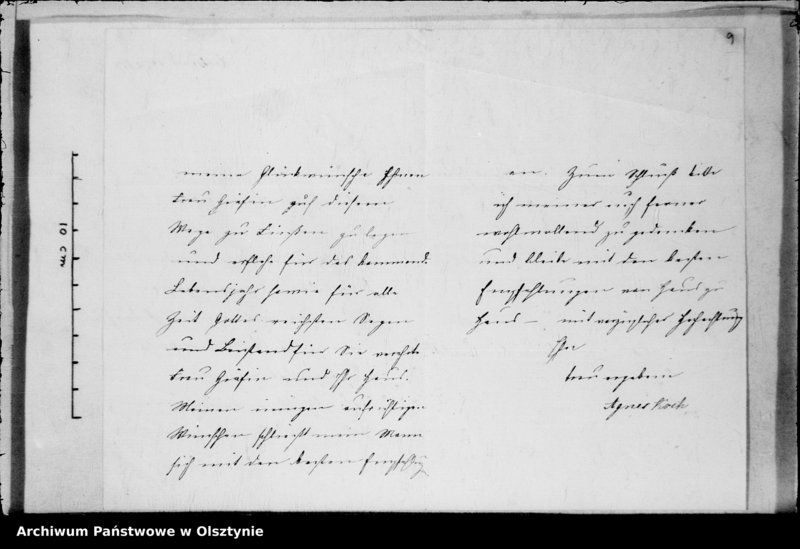 9
meine Glückwünsche Ihnen
Frau Gräfin auf diesem
Wege zu Füßen zu legen
und erflehe für das kommende
Lebensjahr sowie für alle
Zeit Gottes reichsten Segen
und Beistand für Sie verehrte
Frau Gräfin und Ihr Haus.
Meinen innigen aufrichtigen
Wünschen schließt mein Mann
sich mit den besten Empfehlg
an. Zum Schluß bitte
ich meiner auch ferner
wohlwollend zu gedenken
und bleibe mit den besten
Empfehlungen von Haus zu
Haus – mit Hochachtung
Ihre
treu ergebene
Agnes Koch
10 cm
Archiwum Państwowe w Olsztynie